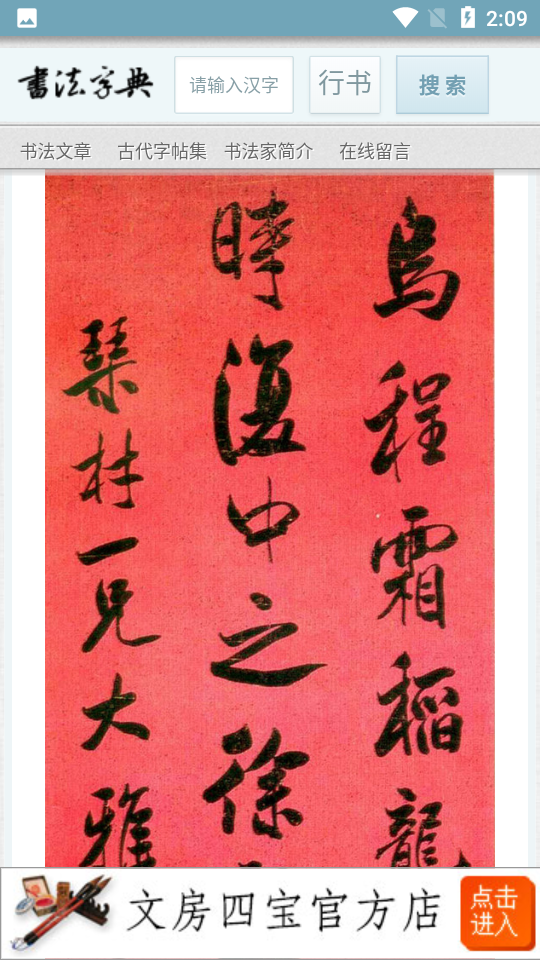 2:09
書法字典
请输入汉字
行书
搜索
书法文章 古代字帖集 书法家简介 在线留言
烏程霜稻龍
時復中之徐
琹林一兄大雅
文房四宝官方店
点击
进入